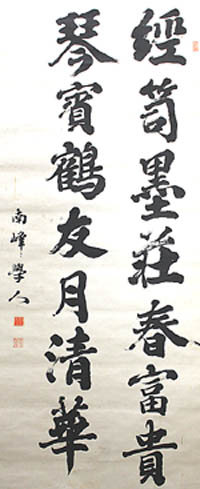 經笥墨莊春富貴
琴賓鶴友月清華
南峰學人